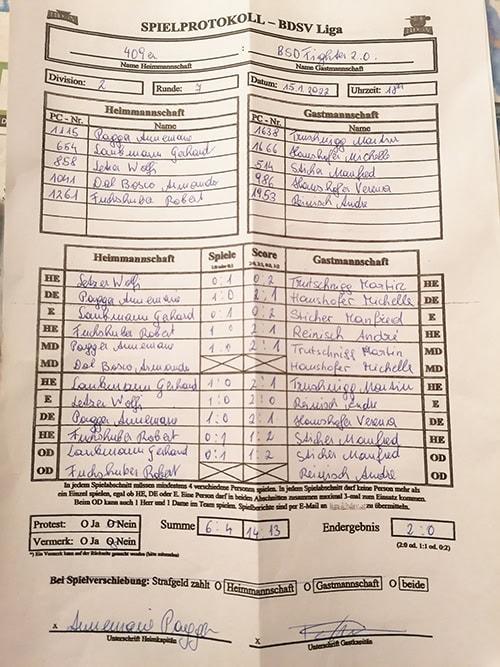 SPIELPROTOKOLL – BDSV Liga
409er : BSD Fighter 2.0.
Name Heimmannschaft Name Gastmannschaft
Division: 2 Runde: 7 Datum: 15.1.2022 Uhrzeit: 18°°
Heimmannschaft Gastmannschaft
PC - Nr. Name PC - Nr. Name
1115 Pagger Annemarie 1638 Trutschnigg Martin
664 Laubmann Gerhard 1666 Haushofer Michelle
858 Letzer Wolfi 514 Sticher Manfred
1041 Dal Bosco Armando 986 Haushofer Verena
1261 Fuchshuber Robert 1953 Reinisch Andre
Heimmannschaft Spiele Score Gastmannschaft
1:0 oder 0:1 2:0, 2:1, 0:2, 1:2
HE Letzer Wolfi 0 : 1 0 : 2 Trutschnigg Martin HE
DE Pagger Annemarie 1 : 0 2 : 1 Haushofer Michelle DE
E Laubmann Gerhard 0 : 1 0 : 2 Sticher Manfred E
HE Fuchshuber Robert 1 : 0 2 : 1 Reinisch André HE
MD Pagger Annemarie 1 : 0 2 : 1 Trutschnigg Martin MD
MD Dal Bosco Armando Haushofer Michelle MD
HE Laubmann Gerhard 1 : 0 2 : 1 Trutschnigg Martin HE
E Letzer Wolfi 1 : 0 2 : 0 Reinisch Andre E
DE Pagger Annemarie 1 : 0 2 : 1 Haushofer Verena DE
HE Fuchshuber Robert 0 : 1 1 : 2 Sticher Manfred HE
OD Laubmann Gerhard 0 : 1 1 : 2 Sticher Manfred OD
OD Fuchshuber Robert Reinisch Andre OD
In jedem Spielabschnitt müssen mindestens 4 verschiedene Personen spielen. In jedem Spielabschnitt darf keine Person mehr als
ein Einzel spielen, egal ob HE, DE oder E. Eine Person darf in beiden Abschnitten zusammen maximal 3-mal zum Einsatz kommen.
Beim OD kann auch 1 Herr und 1 Dame im Team spielen. Spielberichte sind per E-Mail an zu übermitteln.
Protest: O Ja O Nein Summe 6 : 4 14 : 13 Endergebnis 2 : 0
Vermerk: O Ja O Nein (2:0 od. 1:1 od. 0:2)
*) Ein Vermerk kann auf der Rückseite gemacht werden (bitte mitsenden)
Bei Spielverschiebung: Strafgeld zahlt O Heimmannschaft O Gastmannschaft O beide
x Annemarie Pagger x
Unterschrift Heimkapitän Unterschrift Gastkapitän